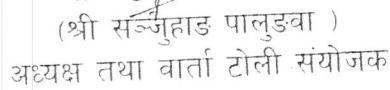 (श्री सञ्जुहाङ पालुङवा )
अध्यक्ष तथा वार्ता टोली संयोजक